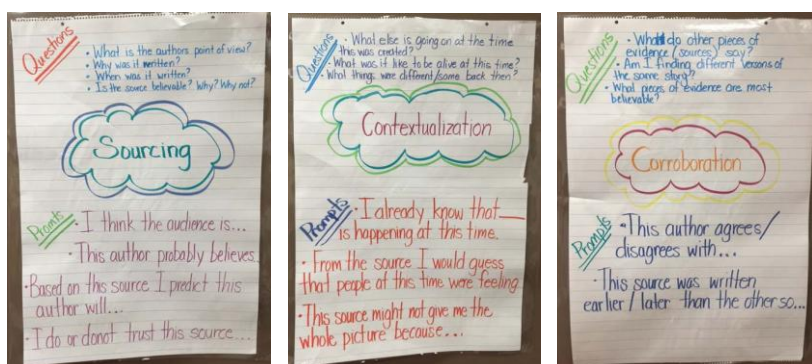 Questions
• What is the authors point of view?
• Why was it written?
• When was it written?
• Is the source believable? Why? Why not?
Sourcing
Prompts
• I think the audience is...
• This author probably believes
• Based on this source I predict this
author will...
• I do or donot trust this source...
Questions
• What else is going on at the time
this was created?
• What was it like to be alive at this time?
• What things were different/same back then?
Contextualization
Prompts
• I already know that ___
is happening at this time.
• From the source I would guess
that people at this time were feeling
• This source might not give me the
whole picture because...
Questions
• What do other pieces of
evidence (sources) say?
• Am I finding different versions
of the same story?
• What pieces of evidence are most
believable?
Corroboration
Prompts
• This author agrees/
disagrees with...
• This source was written
earlier/later than the other so...